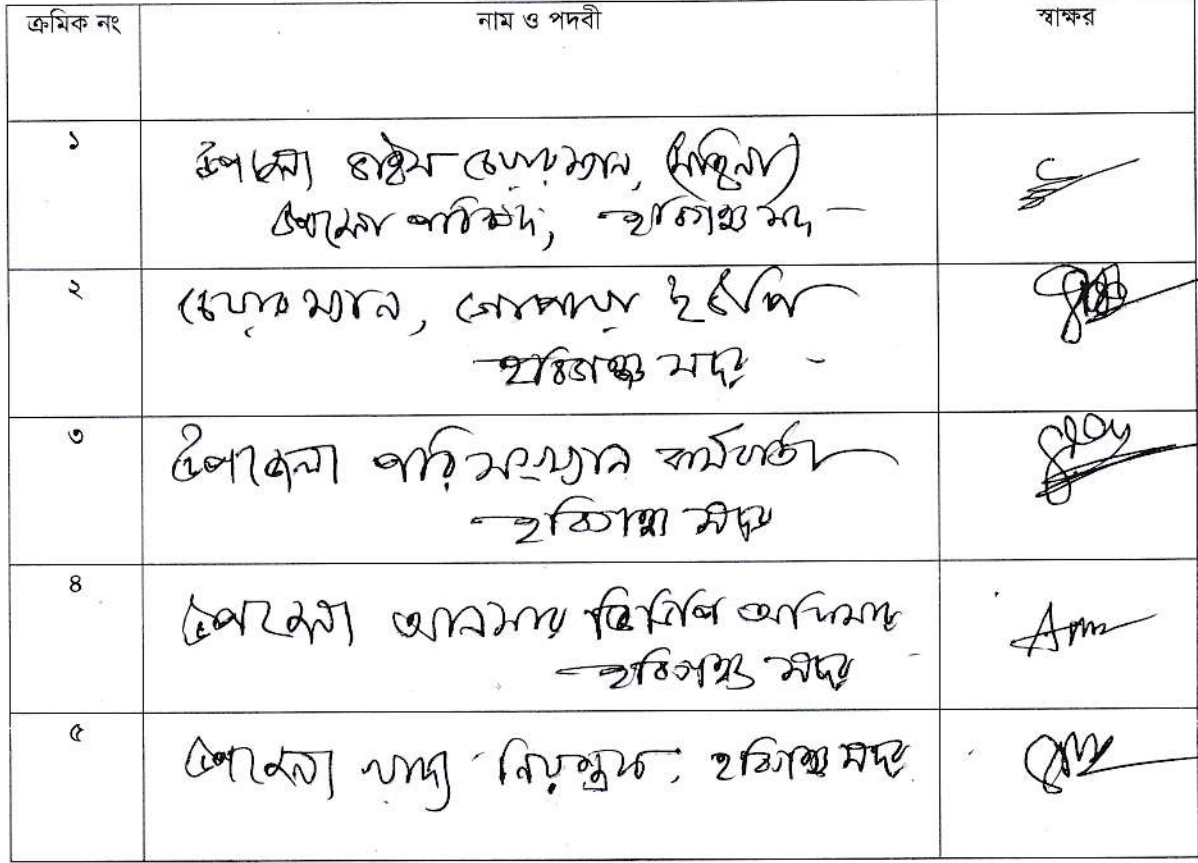 ক্রমিক নং নাম ও পদবী স্বাক্ষর
১ উপজেলা ভাইস চেয়ারম্যান, (মহিলা)
উপজেলা পরিষদ, হবিগঞ্জ সদর
২ চেয়ারম্যান, গোপায়া ইউপি
হবিগঞ্জ সদর
৩ উপজেলা পরিসংখ্যান কর্মকর্তা
হবিগঞ্জ সদর
৪ উপজেলা আনসার ভিডিপি অফিসার
হবিগঞ্জ সদর
৫ উপজেলা খাদ্য নিয়ন্ত্রক, হবিগঞ্জ সদর